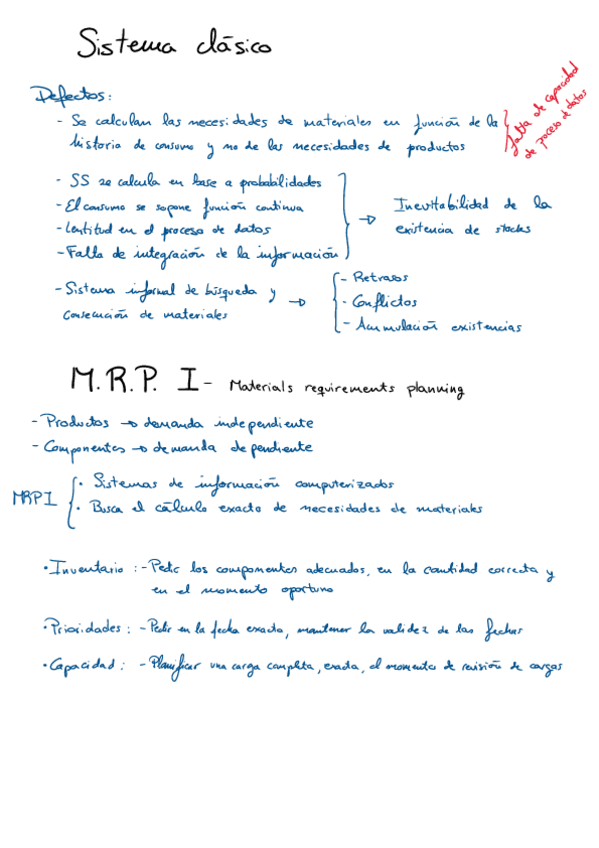 Sistema clásico
Defectos:
- Se calculan las necesidades de materiales en función de la
historia de consumo y no de las necesidades de productos
falta de capacidad
de proceso de datos
- SS se calcula en base a probabilidades
- El consumo se supone función continua
- Lentitud en el proceso de datos
- Falta de integración de la información
→ Inevitabilidad de la
existencia de stocks
- Sistema informal de búsqueda y
consecución de materiales →
- Retrasos
- Conflictos
- Acumulación existencias
M.R.P. I - Materials requirements planning
- Productos → demanda independiente
- Componentes → demanda dependiente
MRP I
· Sistemas de información computerizados
· Busca el cálculo exacto de necesidades de materiales
· Inventario: - Pedir los componentes adecuados, en la cantidad correcta y
en el momento oportuno
· Prioridades: - Pedir en la fecha exacta, mantener la validez de las fechas
· Capacidad: - Planificar una carga completa, exacta, el momento de revisión de cargas